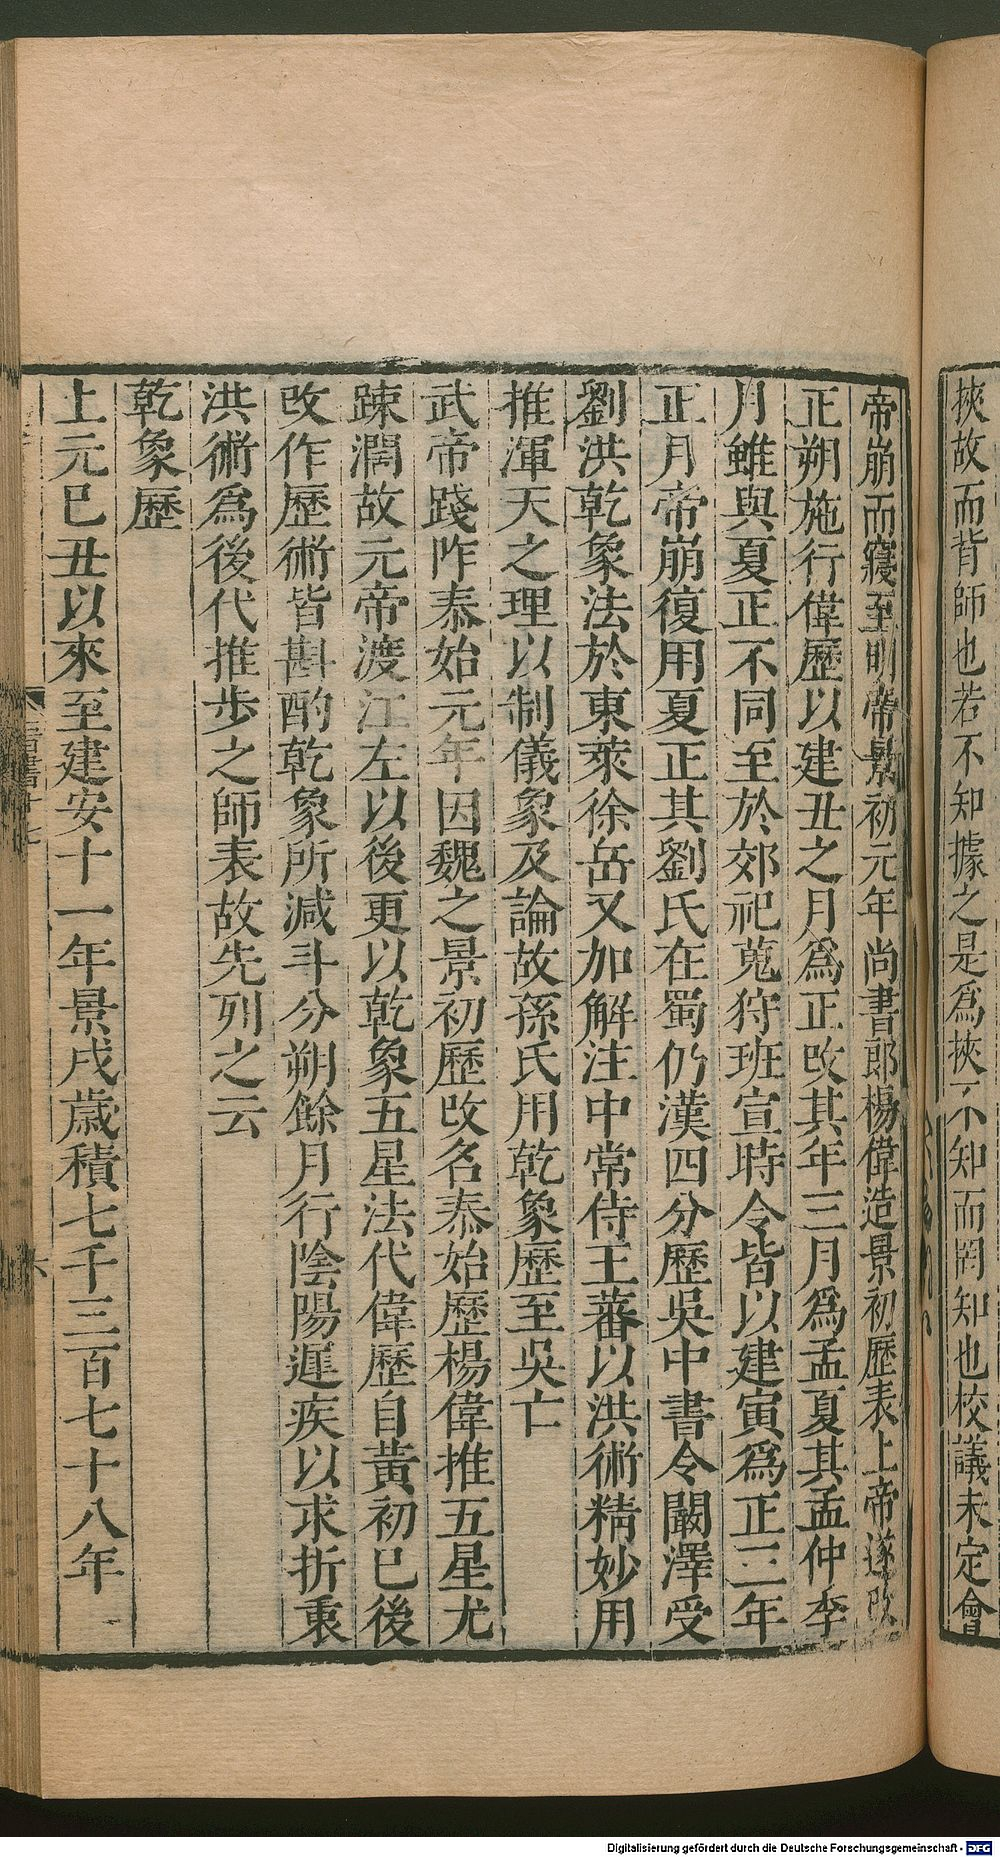 挾故而背師也若不知據之是爲挾不知而罔知也校議未定會
帝崩而寢至明帝景初元年尚書郎楊偉造景初歷表上帝遂改
正朔施行偉歷以建丑之月爲正改其年三月爲孟夏其孟仲季
月雖與夏正不同至於郊祀蒐狩班宣時令皆以建寅爲正三年
正月帝崩復用夏正其劉氏在蜀仍漢四分歷吳中書令闞澤受
劉洪乾象法於東萊徐岳又加解注中常侍王蕃以洪術精妙用
推渾天之理以制儀象及論故孫氏用乾象歷至吳亡
武帝踐阼泰始元年因魏之景初歷改名泰始歷楊偉推五星尤
踈濶故元帝渡江左以後更以乾象五星法代偉歷自黃初已後
改作歷術皆斟酌乾象所減斗分朔餘月行陰陽遲疾以求折衷
洪術爲後代推步之師表故先列之云
乾象歷
上元已丑以來至建安十一年景戌歲積七千三百七十八年
六
Digitalisierung gefördert durch die Deutsche Forschungsgemeinschaft - DFG